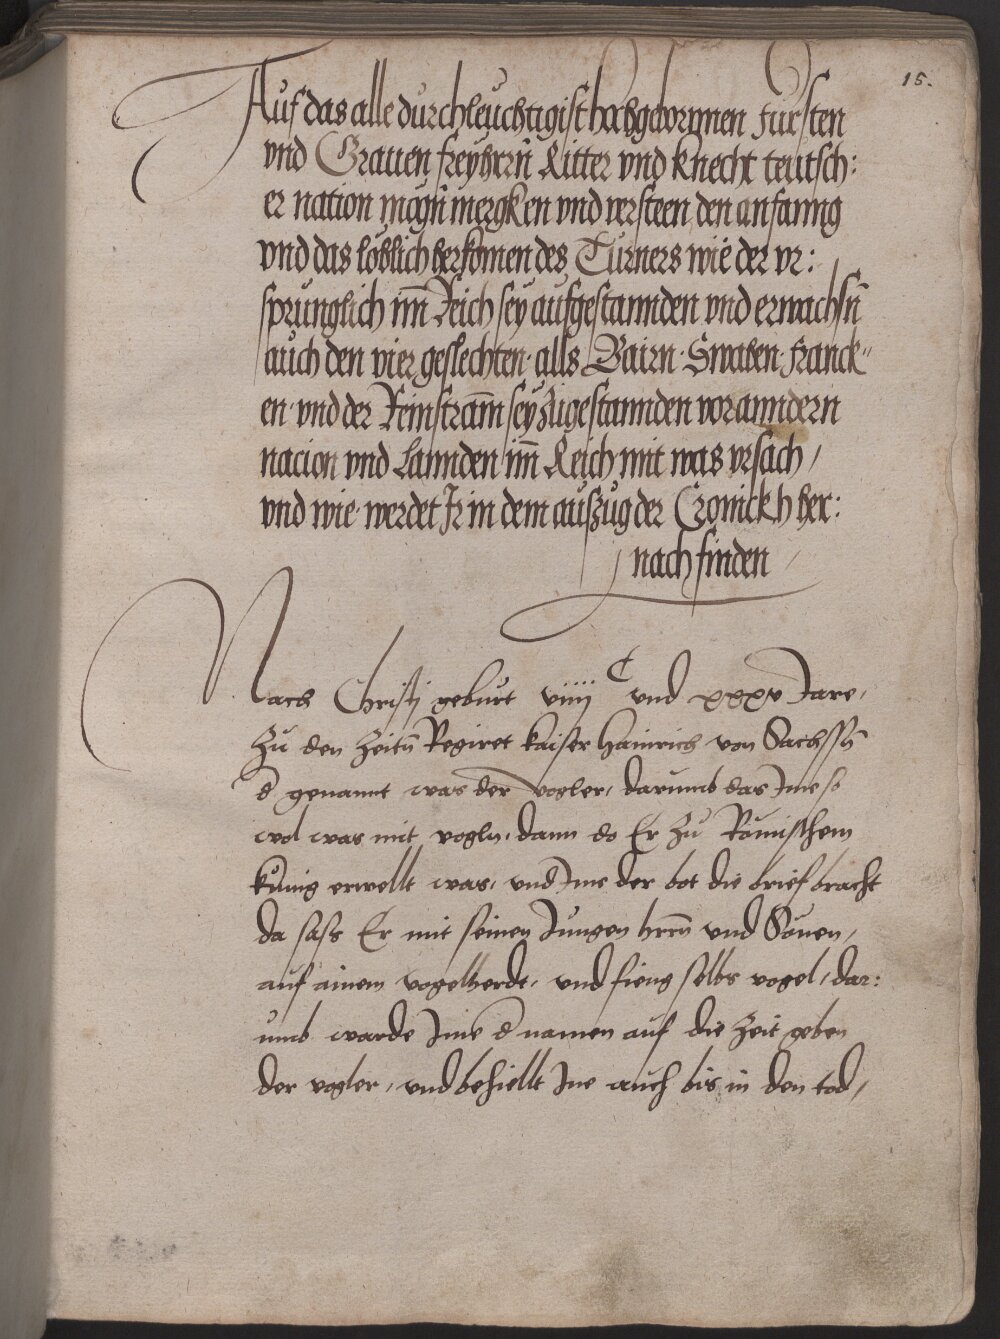 15.
Auf das alle durchleuchtigist hochgebornnen fursten
vnd Grauen freyherrn Ritter vnd knecht teutsch:
er nation mögn̄ mergken vnd versteen den anfanng
vnd das löblich herkomen des Turners wie der vr:
sprunglich im̄ Reich sey aufgestannden vnd erwachsn̄
auch den vier geslechten · alls Bairn · Swaben · Franck"
en · vnd der Reinstram̄ sey zugestannden vor anndern
nacion vnd Lannden im̄ Reich mit was vrsach /
vnd wie · werdet Ir in dem auszug der Cronickh her:
nach finden
Nach Christi geburt viiii C vnd xxxv Jare,
Zu den Zeitn̄ Regiret kaiser Hainrich von Sachssn̄
d genannt was der vogler, darumb das Ime so
wol was mit vogln, dann do Er zu Römischem
künig erwellt was, vnd Ime der bot die brief bracht
da sass Er mit seinen Jungen herrn̄ vnd Sönen,
auf ainem vogelherdt, vnd fieng selbs vogel, dar:
umb warde Ime d namen auf die Zeit geben
der vogler, vnd behiellt Ine auch bis in den tod,